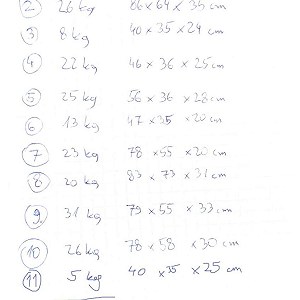 2 26 kg 86 x 64 x 35 cm
3 8 kg 40 x 35 x 24 cm
4 22 kg 46 x 36 x 25 cm
5 25 kg 56 x 36 x 28 cm
6 13 kg 47 x 35 x 20 cm
7 23 kg 78 x 55 x 20 cm
8 20 kg 83 x 73 x 31 cm
9 31 kg 79 x 55 x 33 cm
10 26 kg 78 x 58 x 30 cm
11 5 kg 40 x 35 x 25 cm